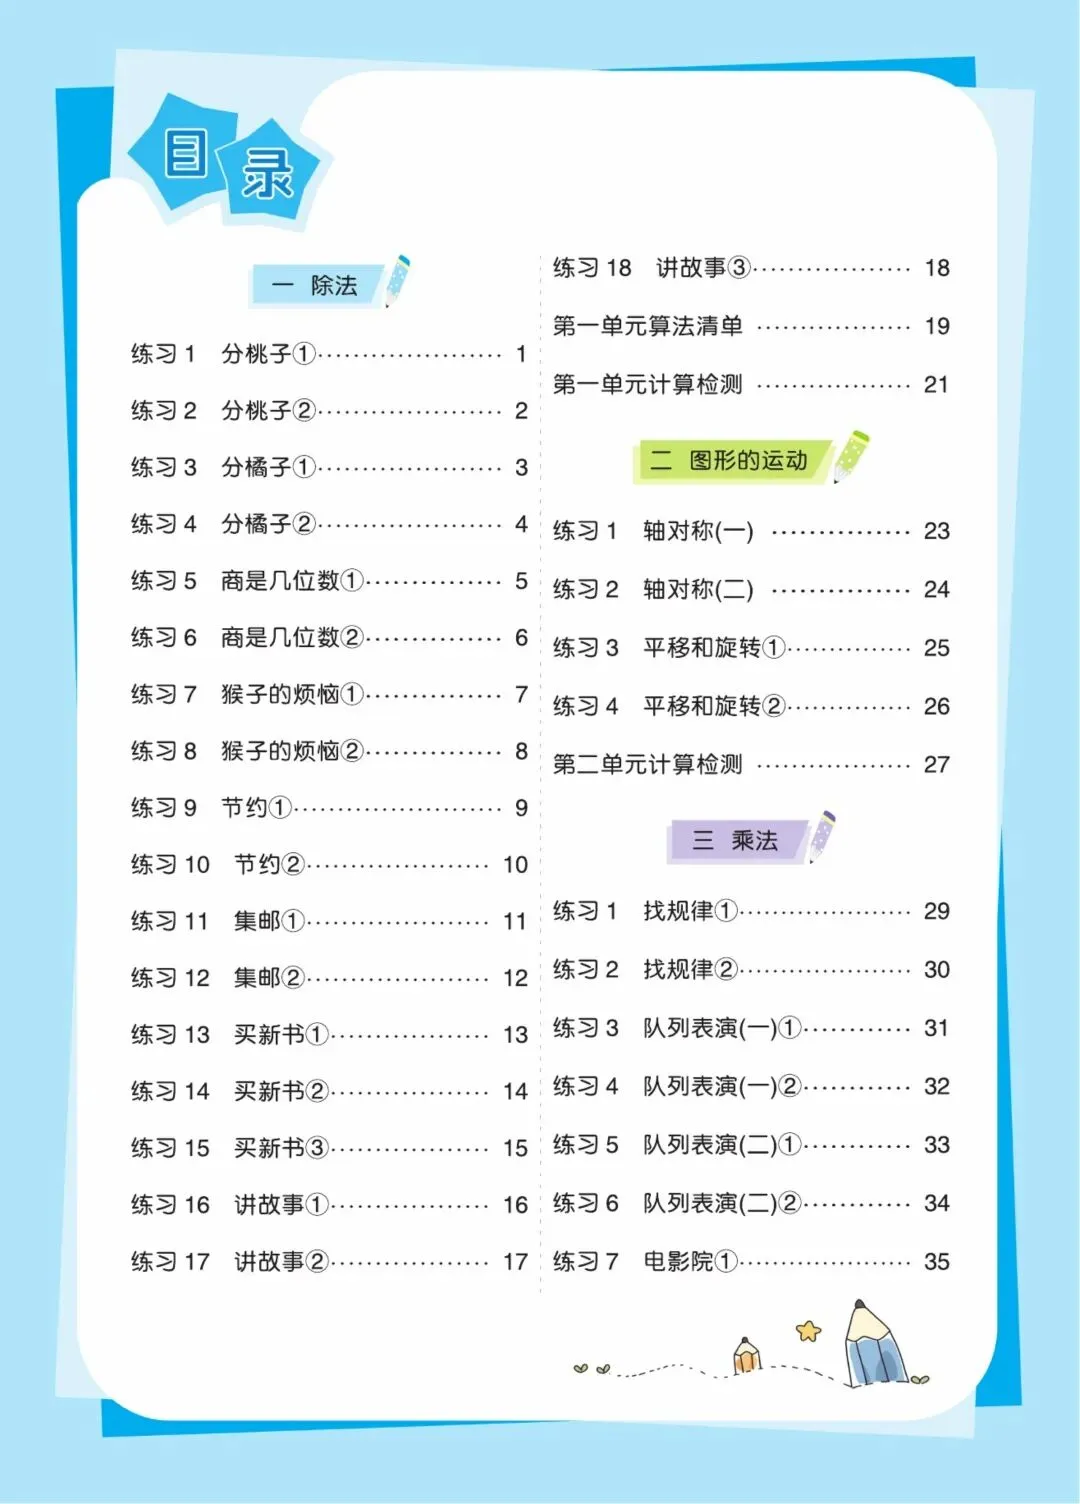 目录
一 除法
练习 1 分桃子①………………… 1
练习 2 分桃子②………………… 2
练习 3 分橘子①………………… 3
练习 4 分橘子②………………… 4
练习 5 商是几位数①…………… 5
练习 6 商是几位数②…………… 6
练习 7 猴子的烦恼①…………… 7
练习 8 猴子的烦恼②…………… 8
练习 9 节约①…………………… 9
练习 10 节约②………………… 10
练习 11 集邮①………………… 11
练习 12 集邮②………………… 12
练习 13 买新书①……………… 13
练习 14 买新书②……………… 14
练习 15 买新书③……………… 15
练习 16 讲故事①……………… 16
练习 17 讲故事②……………… 17
练习 18 讲故事③……………… 18
第一单元算法清单 ……………… 19
第一单元计算检测 ……………… 21
二 图形的运动
练习 1 轴对称(一) …………… 23
练习 2 轴对称(二) …………… 24
练习 3 平移和旋转①………… 25
练习 4 平移和旋转②………… 26
第二单元计算检测 ……………… 27
三 乘法
练习 1 找规律①……………… 29
练习 2 找规律②……………… 30
练习 3 队列表演(一)①……… 31
练习 4 队列表演(一)②……… 32
练习 5 队列表演(二)①……… 33
练习 6 队列表演(二)②……… 34
练习 7 电影院①……………… 35